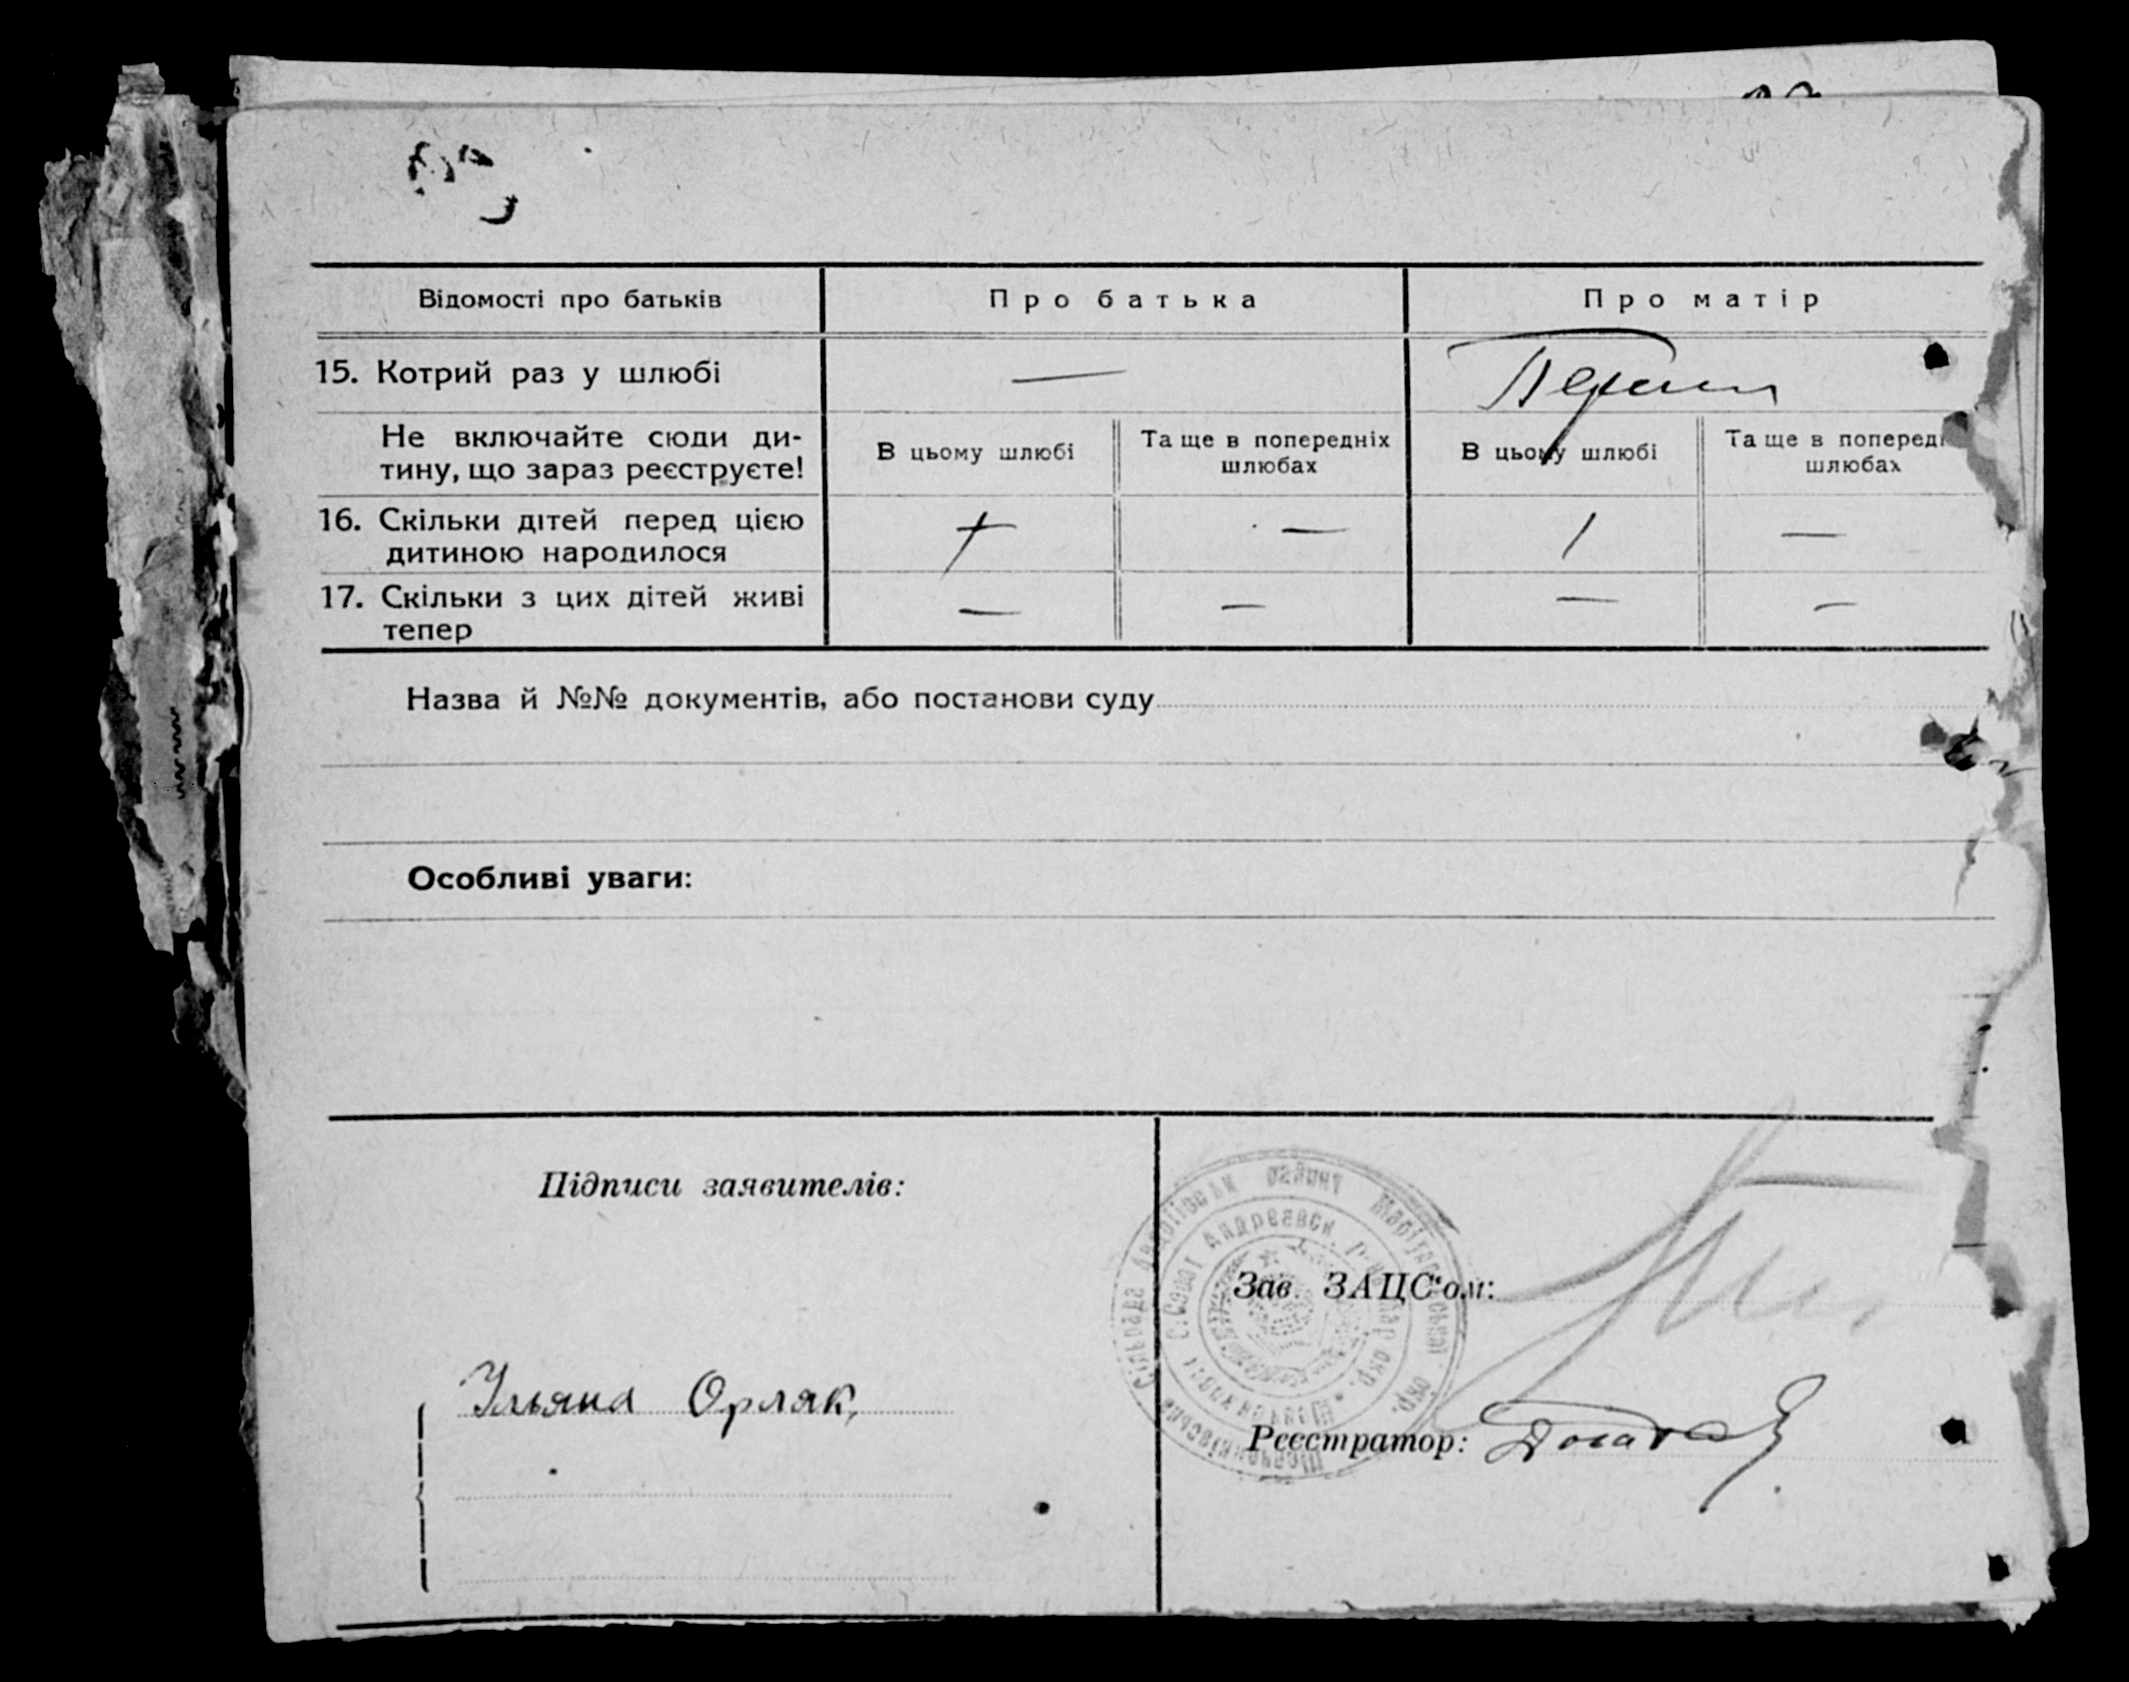 Відомості про батьків
Про батька
Про матір
15. Котрий раз у шлюбі
—
Не включайте сюди ди-
тину, що зараз реєструєте!
В цьому шлюбі
Та ще в попередніх
шлюбах
В цьому шлюбі
Та ще в поперед
шлюбах
16. Скільки дітей перед цією
дитиною народилося
—
1
—
17. Скільки з цих дітей живі
тепер
—
—
—
—
Назва й №№ документів, або постанови суду
Особливі уваги:
Підписи заявителів:
Зав. ЗАЦС'ом:
Ульяна Орляк,
Реєстратор: